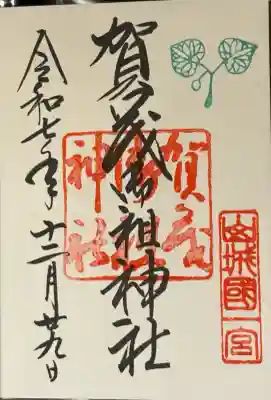 山城國一宮
賀茂御祖神社
賀茂
御祖
神社
令和七年十二月廿九日